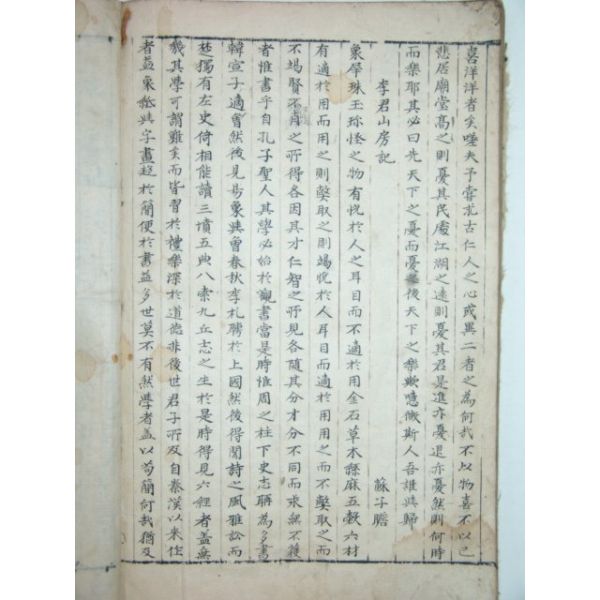 喜洋洋者矣嗟夫予嘗求古仁人之心或異二者之為何哉不以物喜不以己
悲居廟堂高之則憂其民處江湖之遠則憂其君是進亦憂退亦憂然則何時
而樂耶其必曰先天下之憂而憂後天下之樂歟噫微斯人吾誰與歸
李君山房記 蘇子瞻
象犀珠玉珎怪之物有悅於人之耳目而不適於用金石草木絲麻五糓六材
有適於用而用之則獘取之則竭悅於人耳目而適於用用之而不獘取之而
不竭賢不肖之所得各因其才仁智之所見各隨其分才分不同而求無不獲
者惟書乎自孔子聖人其學必始於觀書當是時惟周之柱下史老聃為多書
韓宣子適魯然後見易象與魯春秋季札聘於上國然後得聞詩之風雅訟而
楚獨有左史倚相能讀三墳五典八索九丘士之生於是時得見六經者盖無
幾其學可謂難矣而皆習於禮樂深於道德非後世君子所及自秦漢以来作
者益衆紙與字畫趍於簡便於書益多世莫不有然學者盖以苟簡何哉猶及